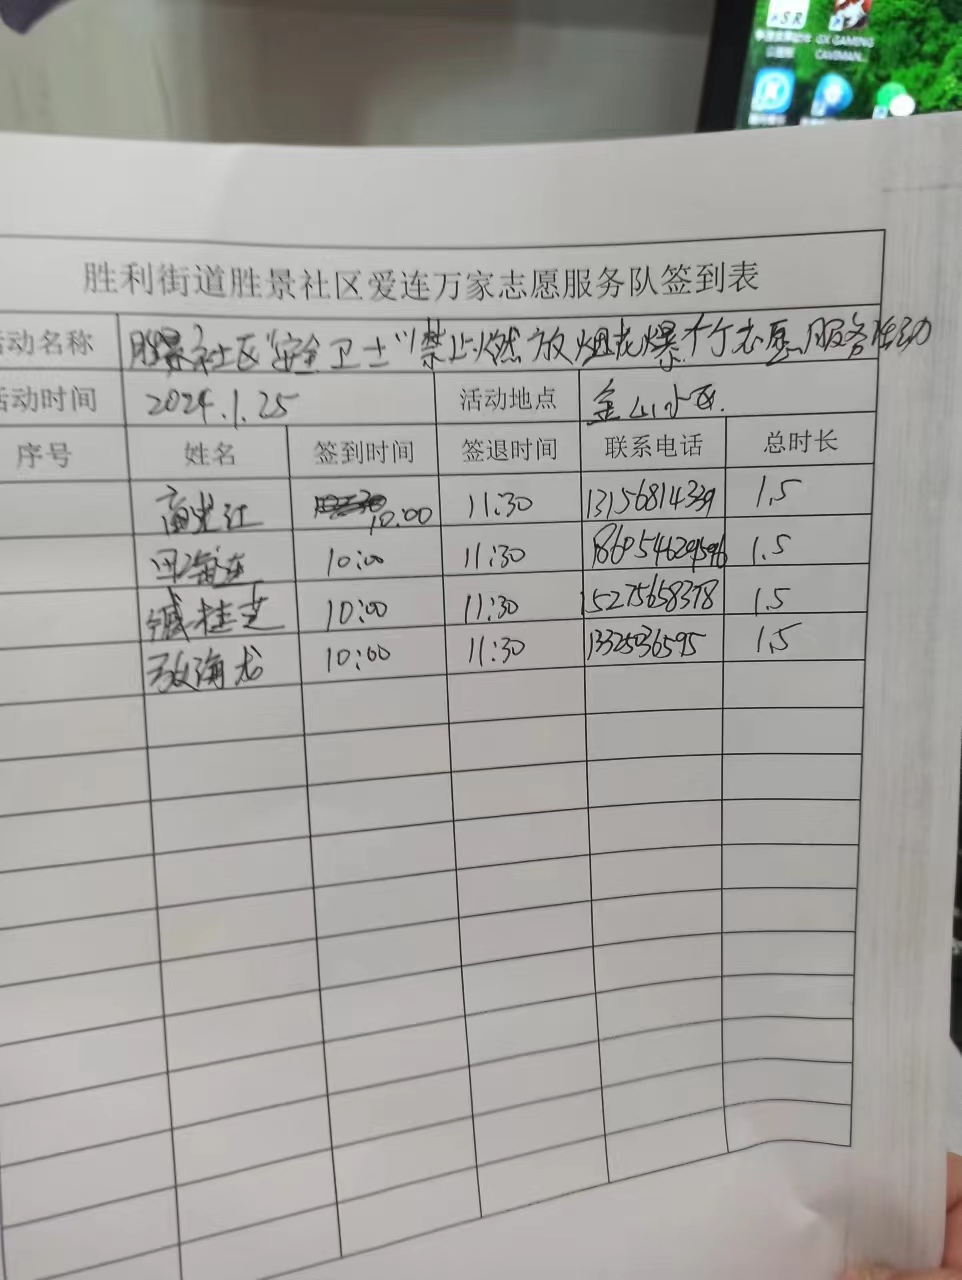 胜利街道胜景社区爱连万家志愿服务队签到表
活动名称 胜景社区"安全卫士"禁止燃放烟花爆竹志愿服务活动
活动时间 2024.1.25 活动地点 金山小区.
序号 姓名 签到时间 签退时间 联系电话 总时长
10:00 11:30 13156814339 1.5
田海连 10:00 11:30 1.5
臧桂芝 10:00 11:30 15275658378 1.5
敬海龙 10:00 11:30 13325036595 1.5